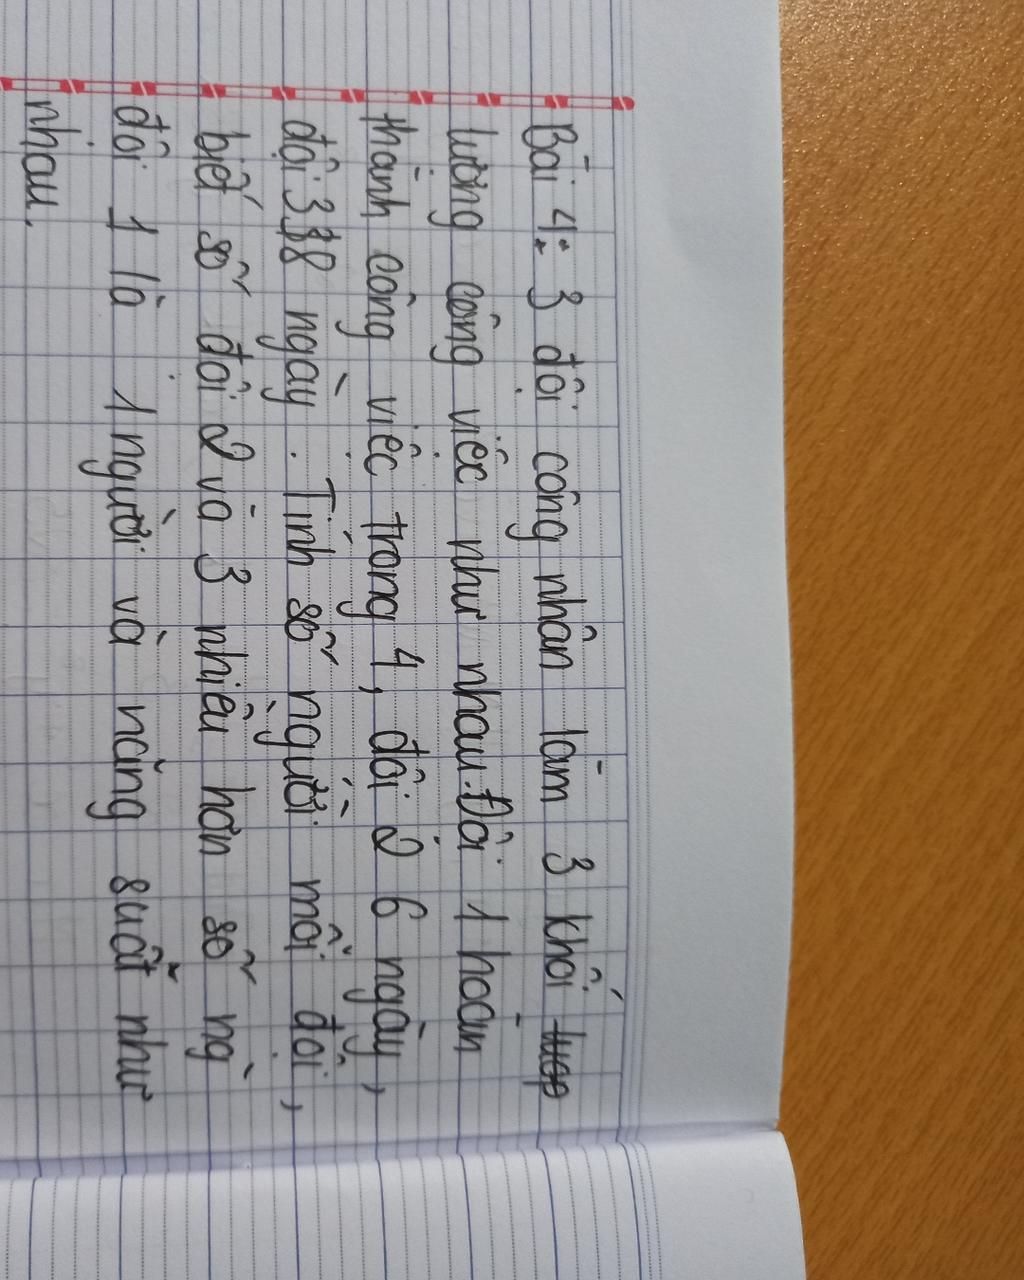 Bài 4: 3 đội công nhân làm 3 khối
lượng công việc như nhau. Đội 1 hoàn
thành công việc trong 4, đội 2 6 ngày,
đội 3 8 ngày. Tính số người mỗi đội,
biết số đội 2 và 3 nhiều hơn số ng
đội 1 là 1 người và năng suất như
nhau.